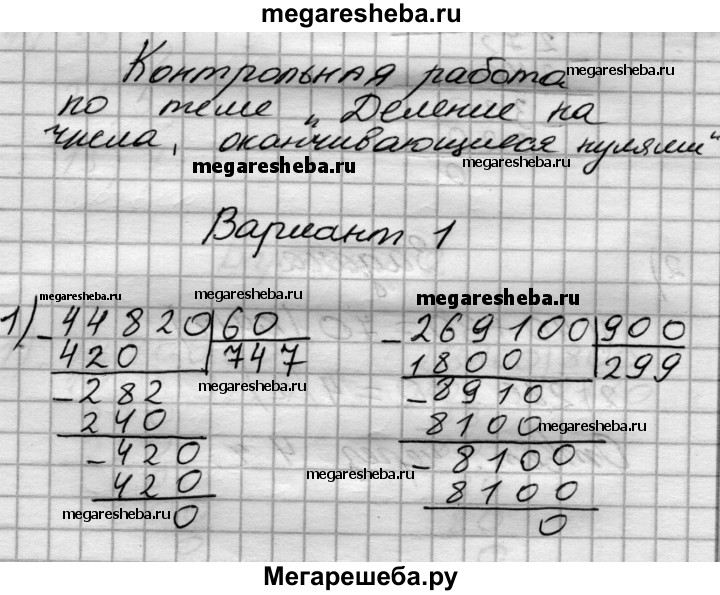 megaresheba.ru
Контрольная работа
megaresheba.ru
по теме „Деление на
числа, оканчивающиеся нулями"
megaresheba.ru
Вариант 1
megaresheba.ru
megaresheba.ru
megaresheba.ru
1) - 44820 | 60
420 | 747
- 282
240
- 420
420
0
megaresheba.ru
megaresheba.ru
- 269100 | 900
1800 | 299
- 8910
8100
- 8100
8100
0
megaresheba.ru
megaresheba.ru
megaresheba.ru
Мегарешеба.ру